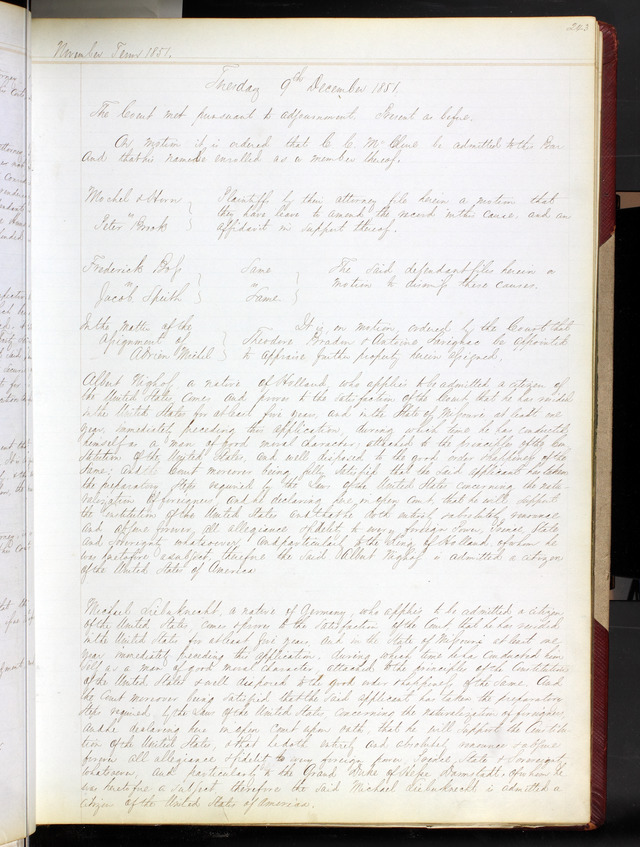 243
November Term 1851.
Tuesday 9th December 1851.
The Court met pursuant to adjournment. Present as before.
On motion it is ordered that C. C. McClure be admitted to the Bar
and that his name be enrolled as a member thereof.
Mochel & Horn
vs
Peter Brock
Plaintiffs by their attorney file herein a motion that
they have leave to amend the record in this cause. and an
affidavit in support thereof.
Frederick
vs
Jacob Speith
Same
vs
Same
The said defendant files herein a
motion to dismiss these causes.
In the Matter of the
Assignment of
Adrien Michel
It is, on motion, ordered by the Court that
Theodore & Antoine be appointed
to appraise further property herein assigned.
Albert a native of Holland, who applies to be admitted a citizen of
the United States, comes and proves to the satisfaction of the Court, that he has resided
in the United States for at least five years, and in the State of Missouri at least one
year, immediately preceding this application, during which time he has conducted
himself as a man of good moral character, attached to the principles of the Con
stitution of the United States, and well disposed to the good order & happiness of the
same; And the Court moreover being fully satisfied that the said applicant has taken
the preparatory steps required by the Laws of the United States concerning the natu
ralization of foreigners, and he declaring here in open Court, that he will support
the Constitution of the United States and that he doth entirely & absolutely renounce
and abjure forever all allegiance & fidelity to every foreign Power, Prince, State
and Sovereignty whatsoever, and particularly to the King of Holland of whom he
was heretofore a subject, therefore the said Albert is admitted a citizen
of the United States of America
Michael Liebknecht, a native of Germany, who applies to be admitted a citizen
of the United States comes & proves to the satisfaction of the Court that he has resided
in the United States for at least five years, and in the State of Missouri at least one
year immediately preceding this application, during which time he has conducted him
self as a man of good moral character, attached to the principles of the Constitution
of the United States & well disposed to the good order & happiness of the same. And
the Court moreover being satisfied that the said applicant has taken the preparatory
steps required by the Laws of the United States, concerning the naturalization of foreigners,
and he declaring here in open Court upon oath, that he will support the Constitu
tion of the United States, & that he doth entirely and absolutely renounce & abjure
forever all allegiance & fidelity to every foreign power, Prince, State & Sovereignty
whatsoever, and particularly to the Grand Duke of Hesse Darmstadt, of whom he
was heretofore a subject therefore the said Michael Liebknecht is admitted a
citizen of the United States of America.